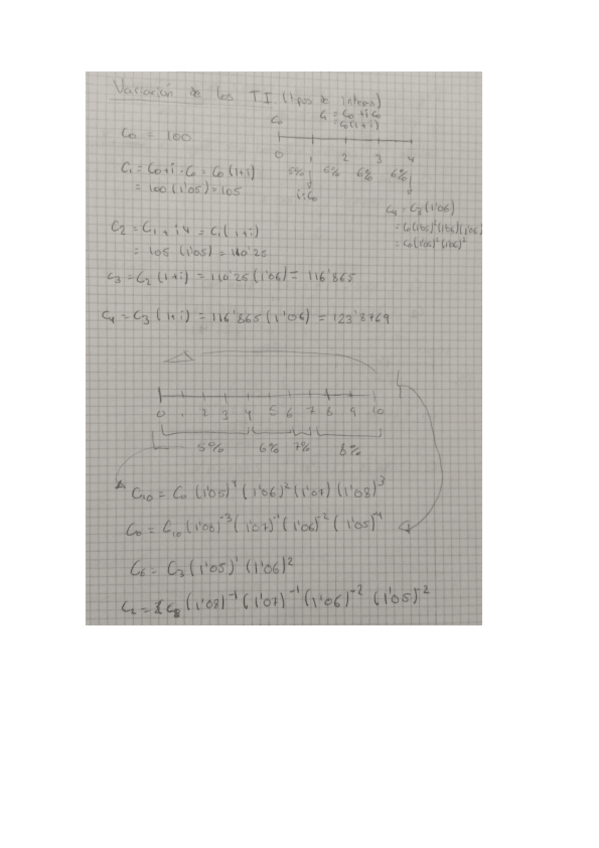 Variación de los T.I (tipos de interes)
C₁ = C₀ + i C₀
= C₀(1+i)
C₀
C₀ = 100
0 1 2 3 4
5% 6% 6% 6%
C₁ = C₀ + i · C₀ = C₀ (1+i)
= 100 (1'05) = 105
C₄ = C₃ (1'06)
= C₀(1'05)²(1'06)(1'06)
= C₀(1'05)²(1'06)²
C₂ = C₁ + i C₁ = C₁(1+i)
= 105 (1'05) = 110'25
C₃ = C₂ (1+i) = 110'25 (1'06) = 116'865
C₄ = C₃ (1+i) = 116'865 (1'06) = 123'8769
0 1 2 3 4 5 6 7 8 9 10
5% 6% 7% 8%
C₁₀ = C₀ (1'05)⁴ (1'06)² (1'07) (1'08)³
C₀ = C₁₀ (1'08)⁻³ (1'07)⁻¹ (1'06)⁻² (1'05)⁻⁴
C₆ = C₃ (1'05)¹ (1'06)²
C₂ = C₈ (1'08)⁻¹ (1'07)⁻¹ (1'06)⁻² (1'05)⁻²